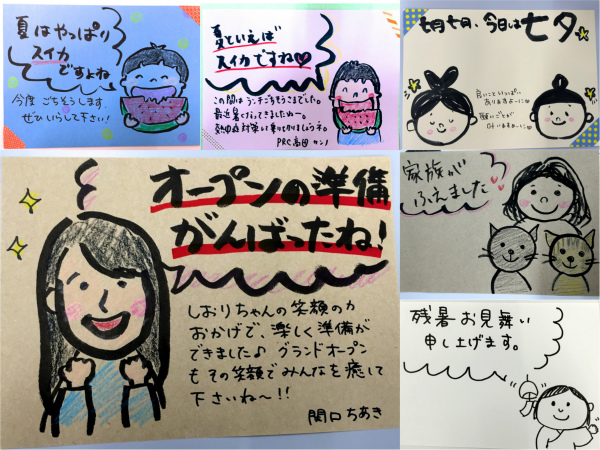 夏はやっぱり
スイカ
ですよね
今度ごちそうします。
ぜひいらして下さい!
夏といえば
スイカですね♡
この間はランチごちそうさまでした。
最近暑くなってきましたねー。
熱中症対策して乗りきりましょう。
七月七日、今日は七夕☆
良いことがいっぱい
ありますように☆
願いごとが
叶いますように☆
家族が
ふえました
オープンの準備
がんばったね!
しおりちゃんの笑顔の力
おかげで、楽しく準備が
できました♪ グランドオープン
もその笑顔でみんなを癒して
下さいね〜!!
関口ちあき
残暑お見舞い
申し上げます。